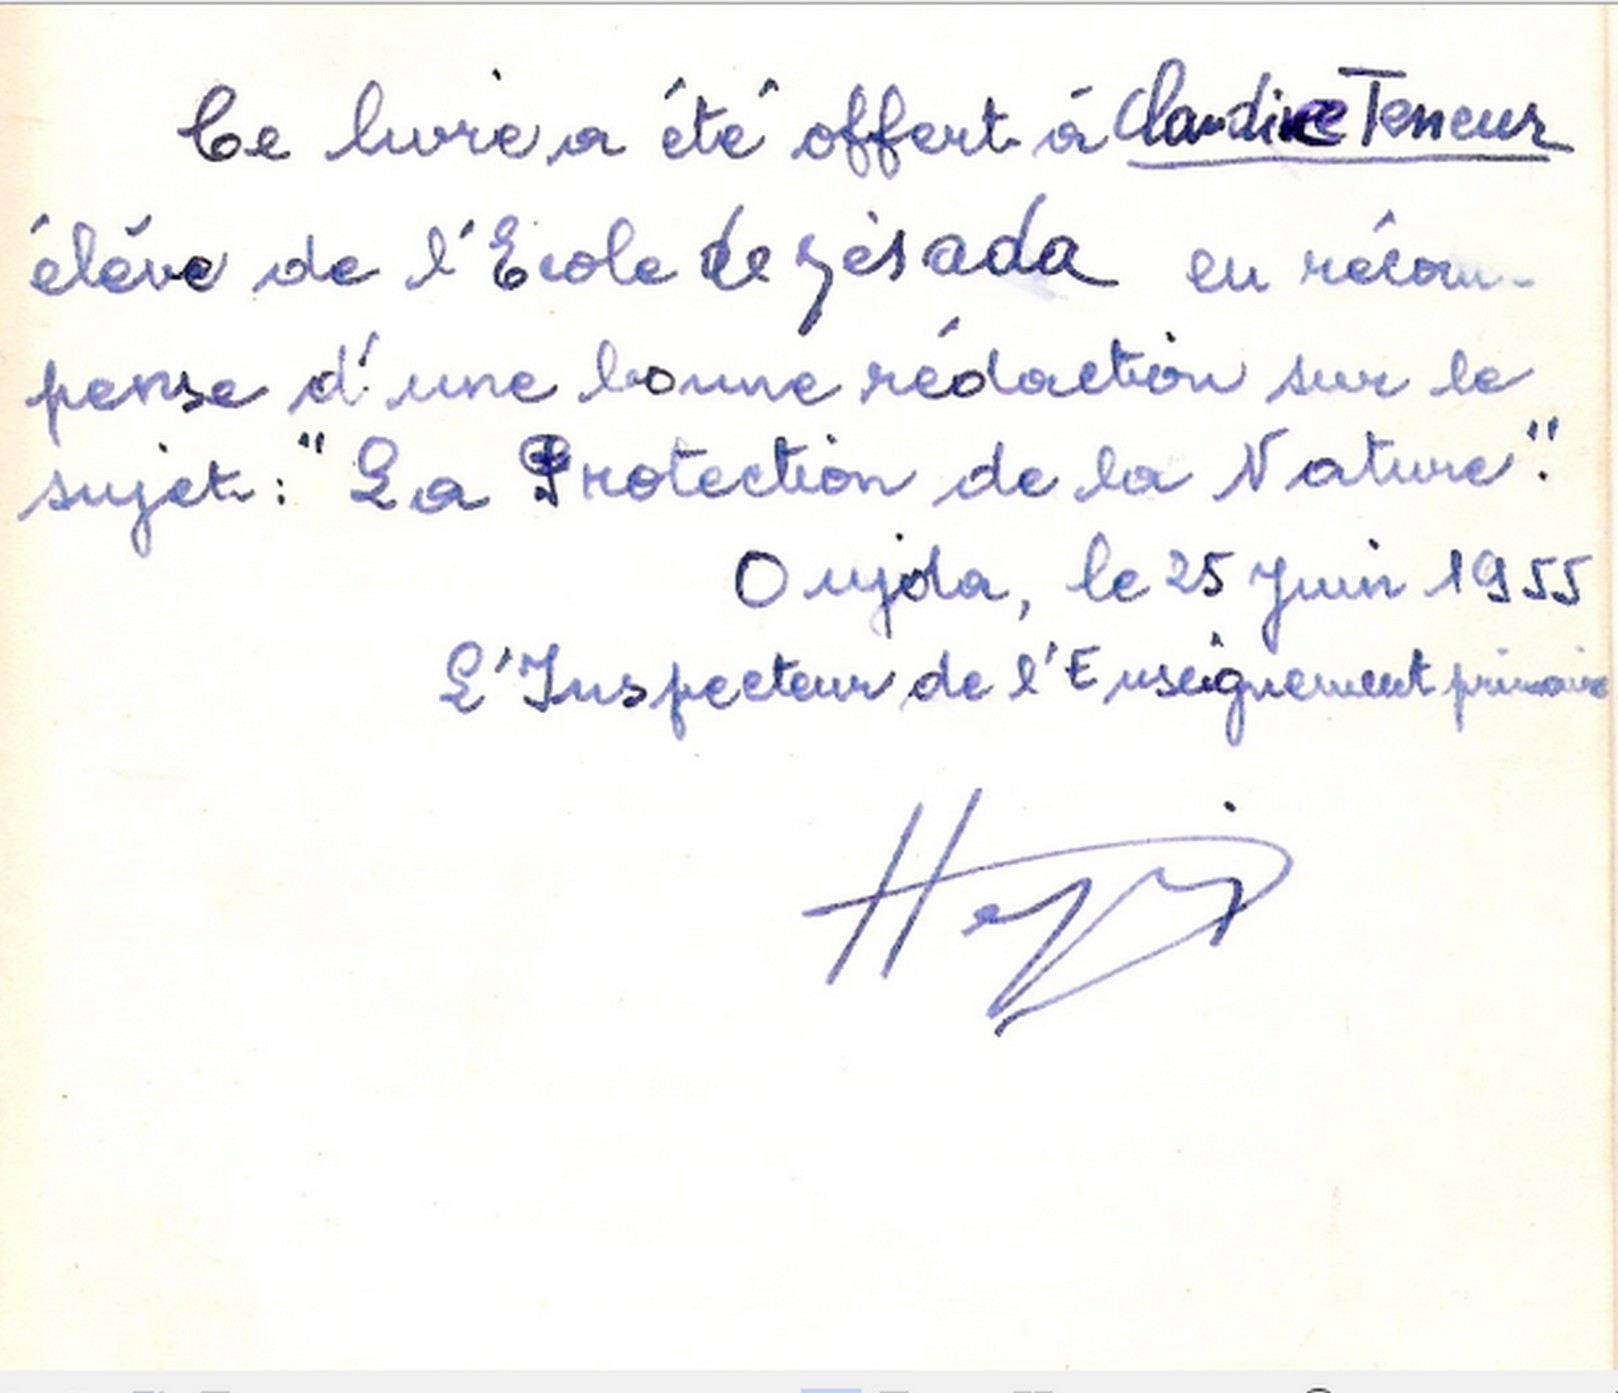 Ce livre a été offert à Claudine Teneur
élève de l'Ecole de en récom-
pense d'une bonne rédaction sur le
sujet : " La Protection de la Nature ".
Oujda, le 25 Juin 1955
L'Inspecteur de l'Enseignement primaire